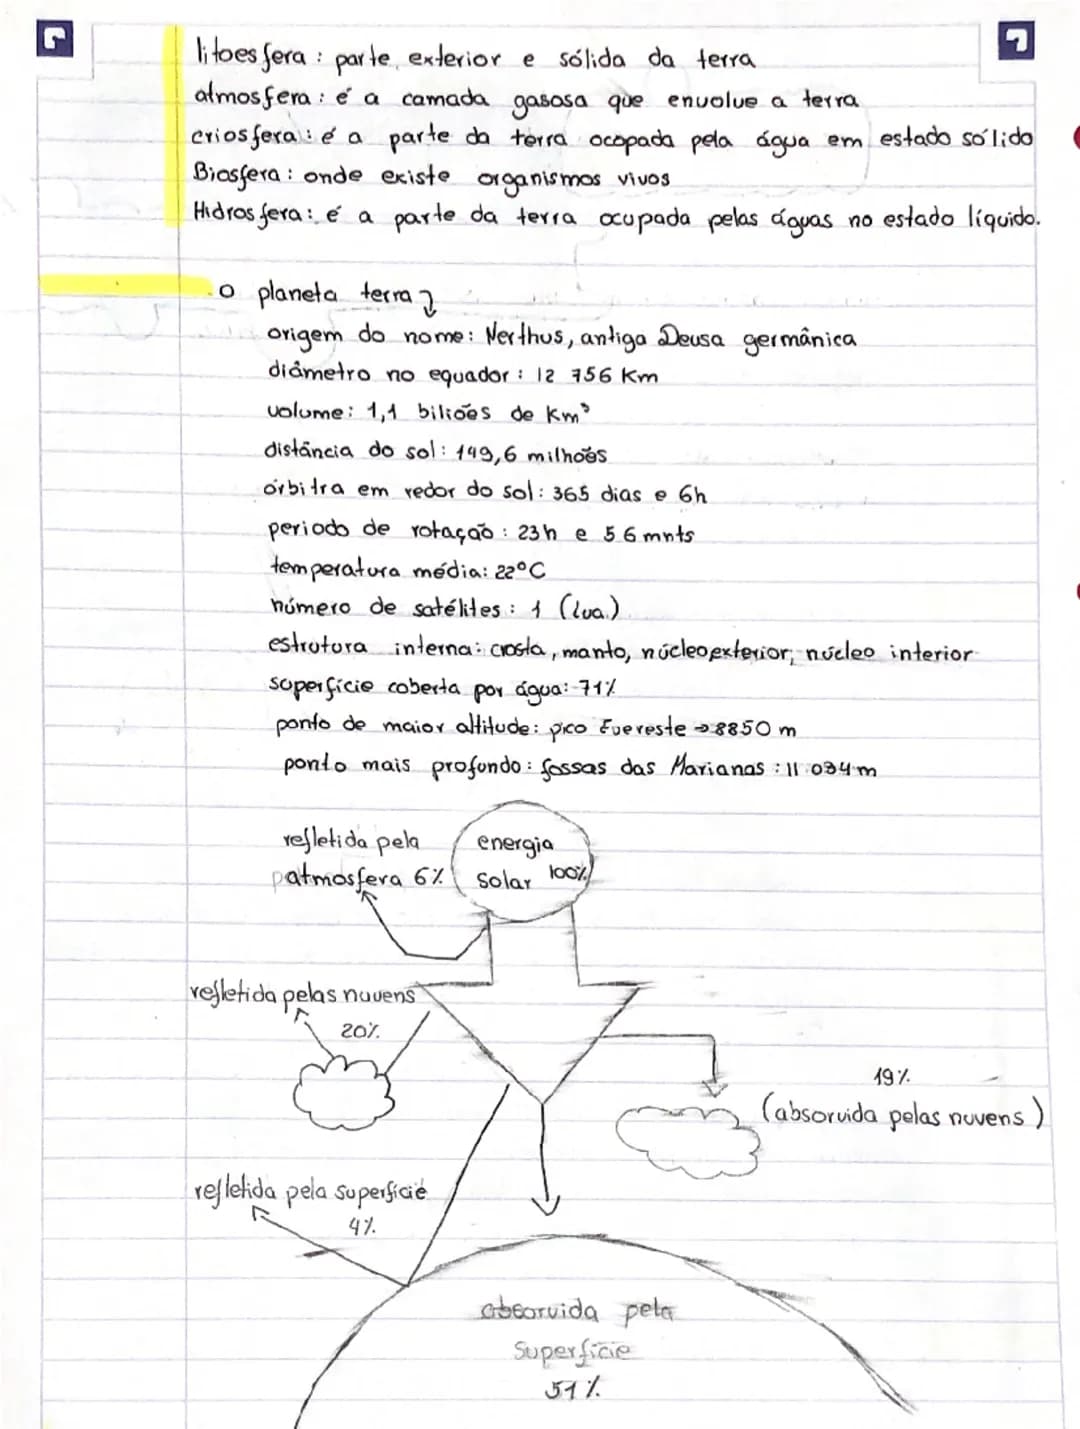 litoesfera : parte exterior e sólida da terra
atmosfera : é a camada gasosa que envolve a terra
criosfera : é a parte da terra ocopada pela água em estado sólido
Biosfera : onde existe organismos vivos
Hidrosfera : é a parte da terra ocupada pelas águas no estado líquido.
o planeta terra
origem do nome : Nerthus, antiga Deusa germânica
diâmetro no equador : 12 756 Km
volume : 1,1 biliões de Km³
distância do sol : 149,6 milhões
órbitra em redor do sol : 365 dias e 6h
periodo de rotação : 23h e 56 mnts
temperatura média : 22°C
número de satélites : 1 (lua)
estrutura interna : crosta, manto, núcleo exterior, núcleo interior
superfície coberta por água : 71%
ponto de maior altitude : pico Evereste → 8850 m
ponto mais profundo : fossas das Marianas : 11 034 m
refletida pela
patmosfera 6%
energia
solar 100%
refletida pelas nuvens
20%
19%
(absorvida pelas nuvens)
refletida pela superfície
4%
absorvida pela
Superfície
51%